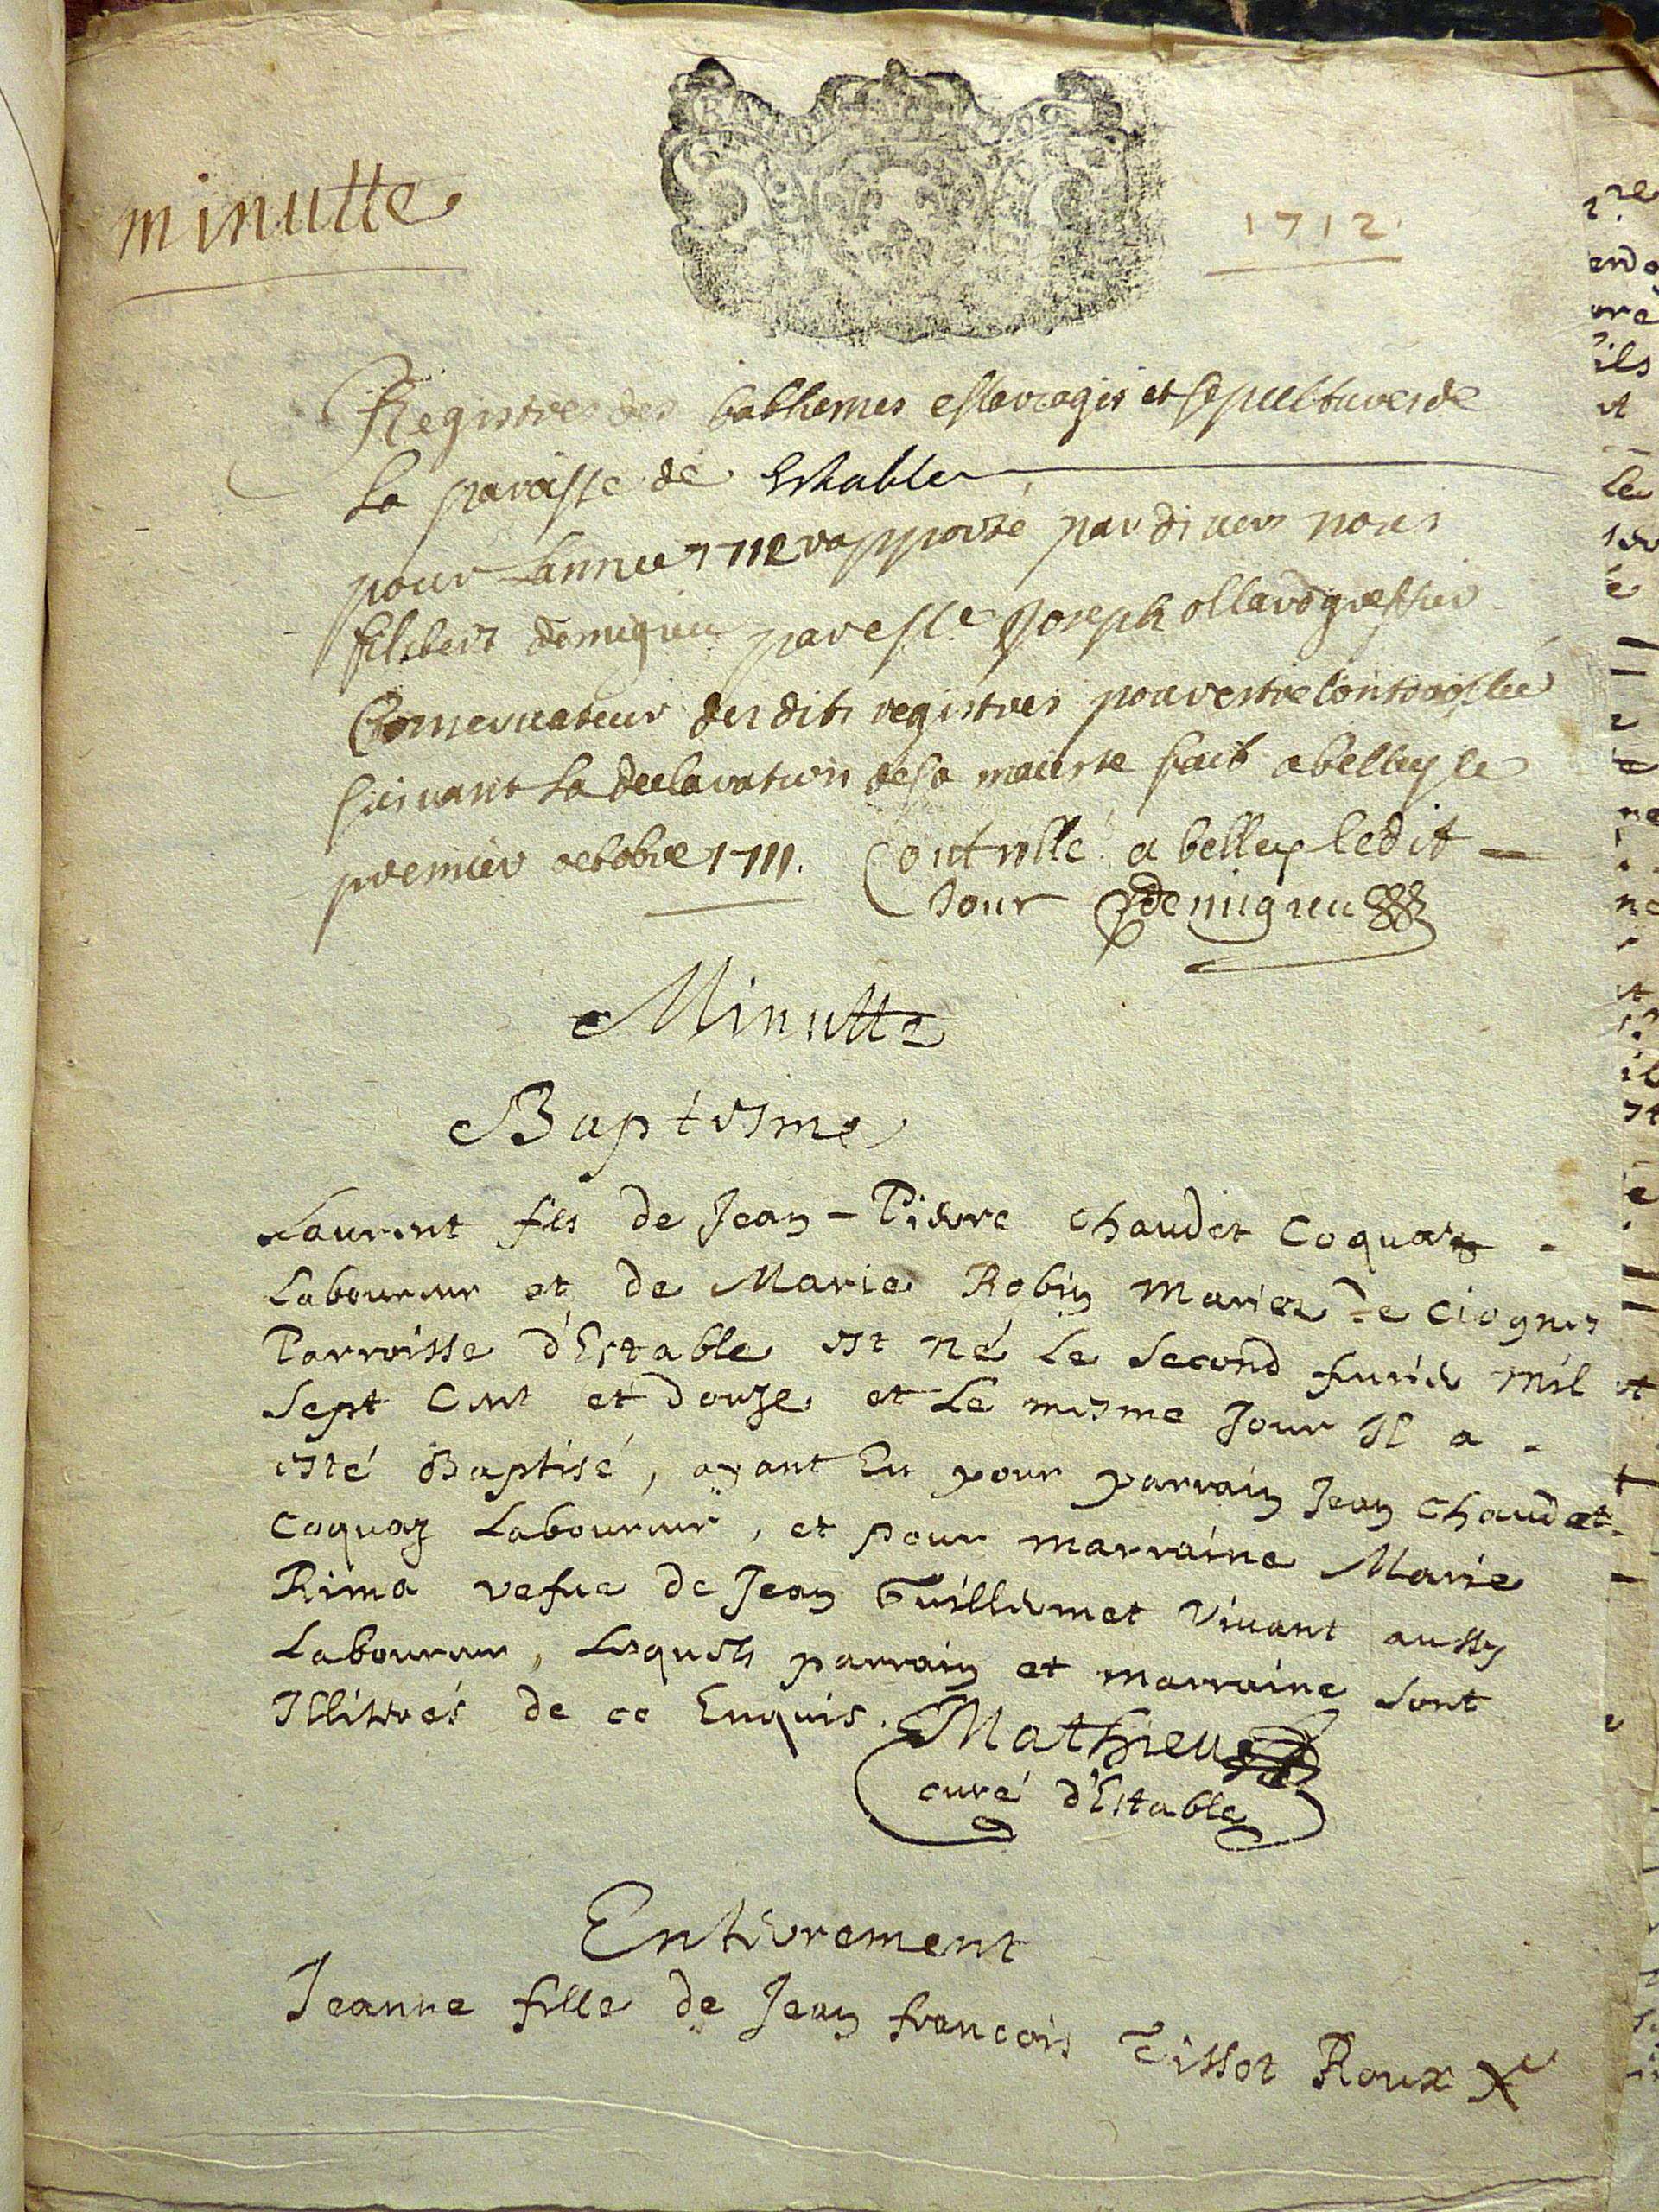 minutte
1712
Registres des babtemes mariages et sepultures de
la paroisse de Estable
pour lannee 1712 rapporté par divers nous
filibert demigieu par Joseph ollard greffier
Conservateur desdits registres pour estre controollé
suivant la declaration de sa maieste fait a belley le
premier octobre 1711. Controllé a belley ledit
Jour Demigieu
Minutte
Baptesme
Laurent fils de Jean-Pierre chaudet Coquaz
Laboureur et de Marie Robin mariez de
Parroisse d'Estable est né le second feurier mil
sept cent et douze et le mesme Jour Il a
esté Baptisé, ayant Eu pour parrain Jean chaudet
Coquaz Laboureur, et pour marraine Marie
Rima vefue de Jean Guillermet vivant aussy
Laboureur, lesquels parrain et marraine sont
Illitrés de ce Enquis. Mathieu
curé d'Estable
Enterrement
Jeanne fille de Jean francois Tissot Roux